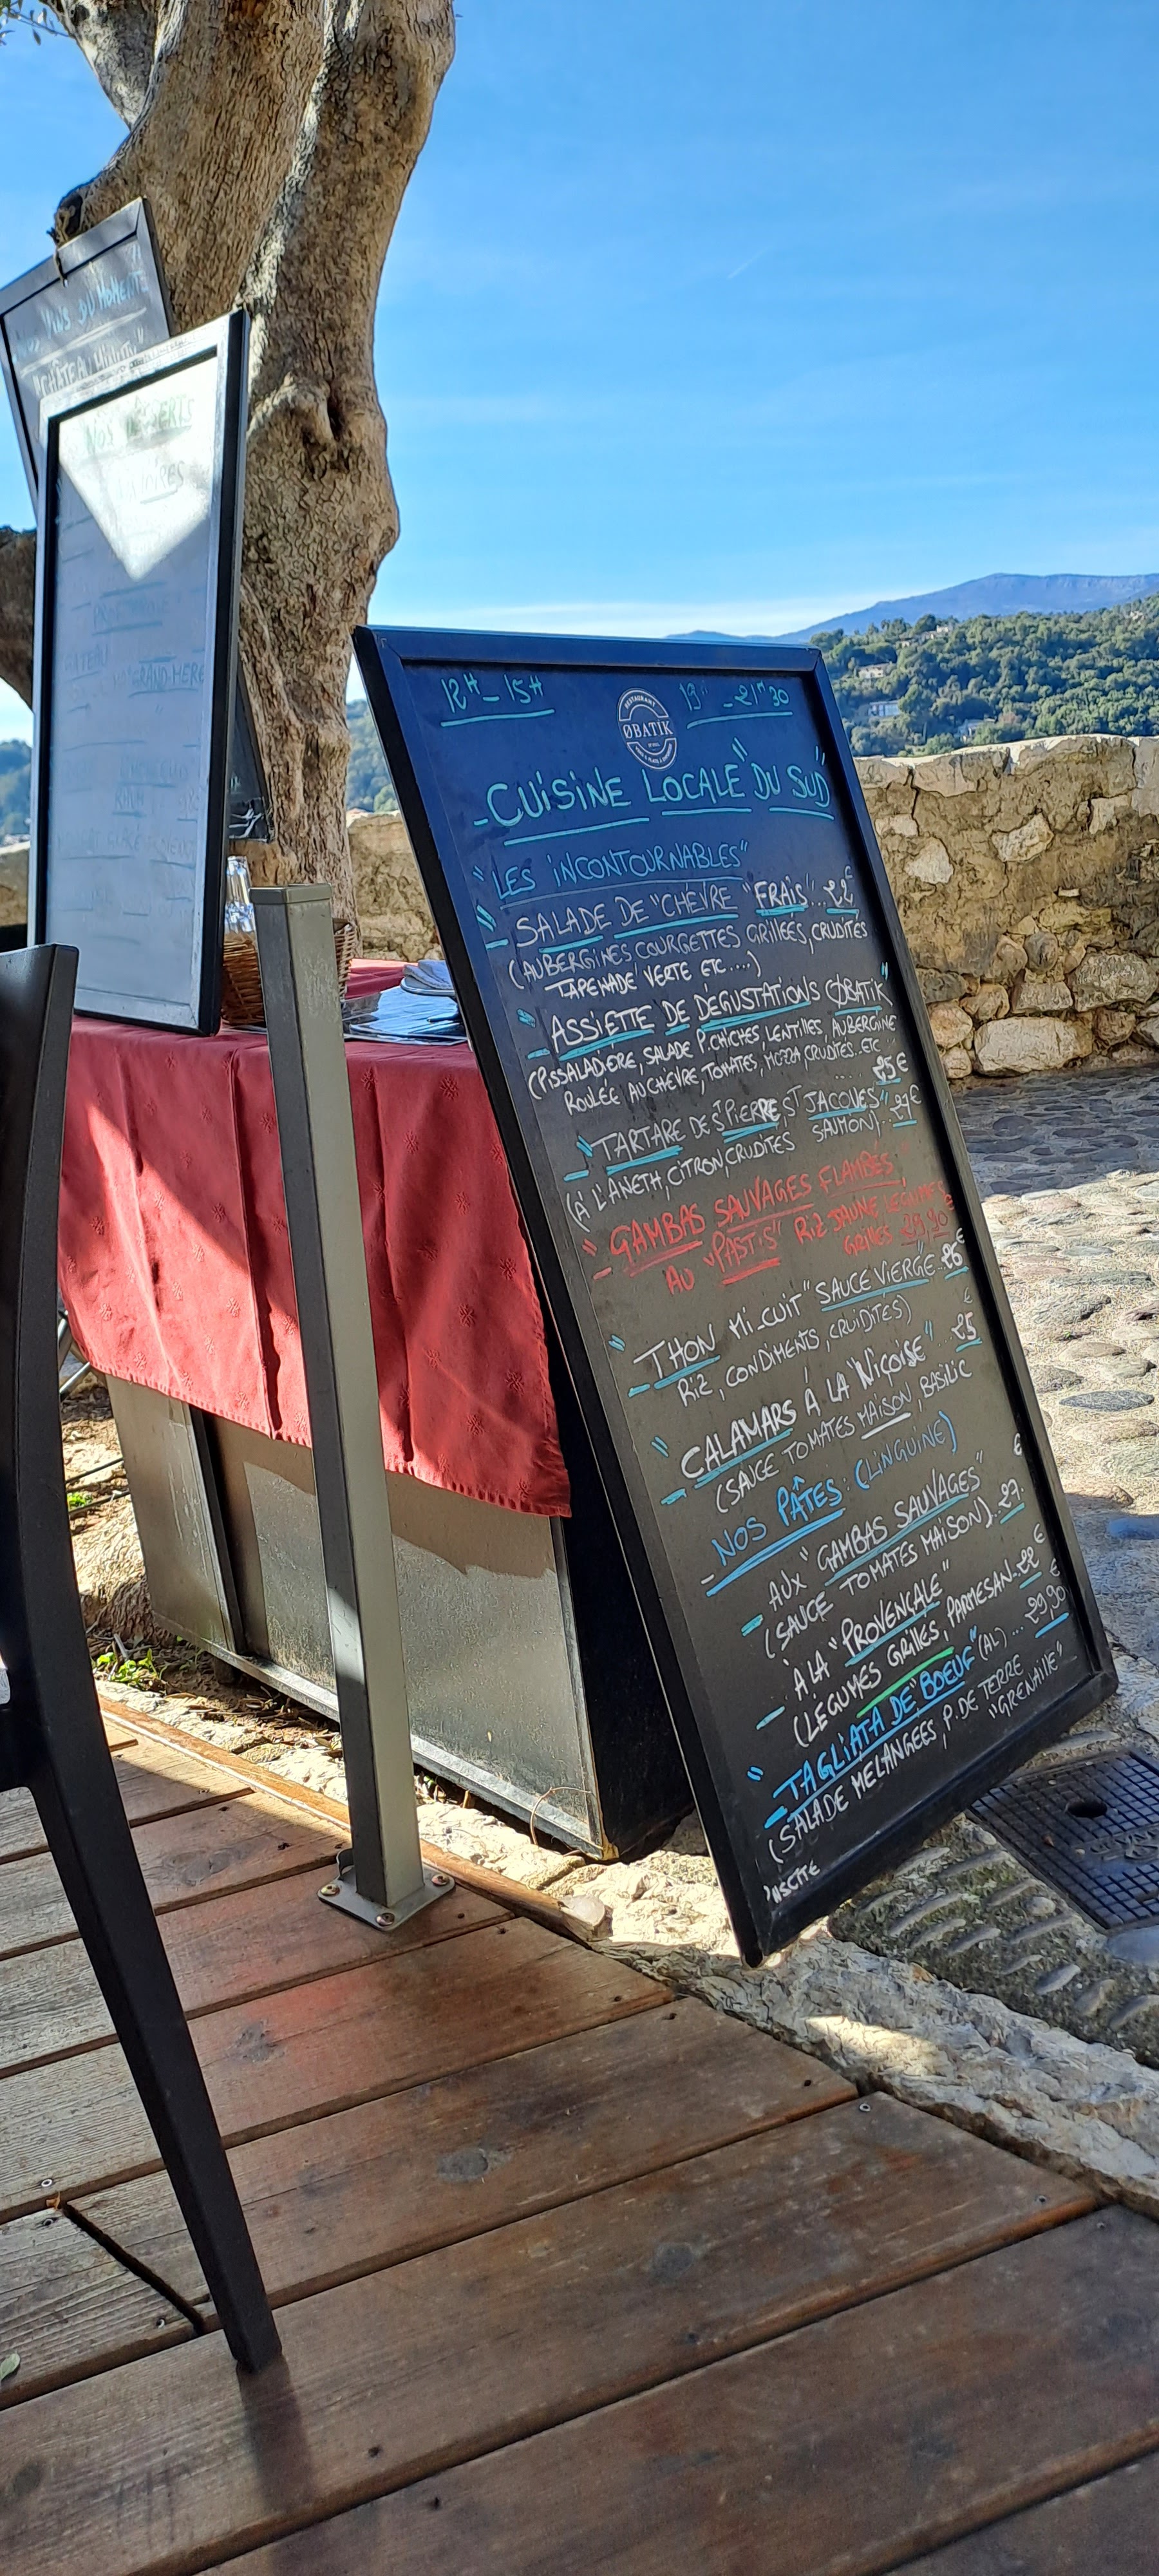 VINS DU MOMENT
NOS DESSERTS
GRAND-MERE
12H - 15H
19H - 21H30
RESTAURANT
ØBATIK
- CUISINE LOCALE "DU SUD"
"LES INCONTOURNABLES"
- SALADE DE "CHÈVRE "FRAIS".. 22€
(AUBERGINES COURGETTES GRILLÉES, CRUDITÉS
TAPENADE VERTE ETC ....)
- ASSIETTE DE DÉGUSTATIONS ØBATIK"
(PISSALADIERE, SALADE P.CHICHES, LENTILLES, AUBERGINE
ROULÉE AU CHÈVRE, TOMATES, MOZZA, CRUDITES.. ETC
... 25€
- "TARTARE DE ST PIERRE, ST JACQUES" 27€
(À L'ANETH, CITRON, CRUDITES SAUMON)..
- "GAMBAS SAUVAGES FLAMBÉS
AU "PASTIS" RIZ JAUNE LEGUMES
GRILLÉS 29,90€
- "THON MI-CUIT "SAUCE VIERGE. 26€
RIZ, CONDIMENTS, CRUIDITES)
- "CALAMARS À LA "NIÇOISE".. 25€
(SAUCE TOMATES MAISON, BASILIC
- NOS PÂTES: (LINGUINE)
- AUX "GAMBAS SAUVAGES"
(SAUCE TOMATES MAISON).. 27.€
- À LA "PROVENÇALE"
(LÉGUMES GRILLÉS, PARMESAN.. 22€
- "TAGLIATA DE "BOEUF" (AL) ... 29,90€
(SALADE MELANGEES, P. DE TERRE
"GRENAILLE"